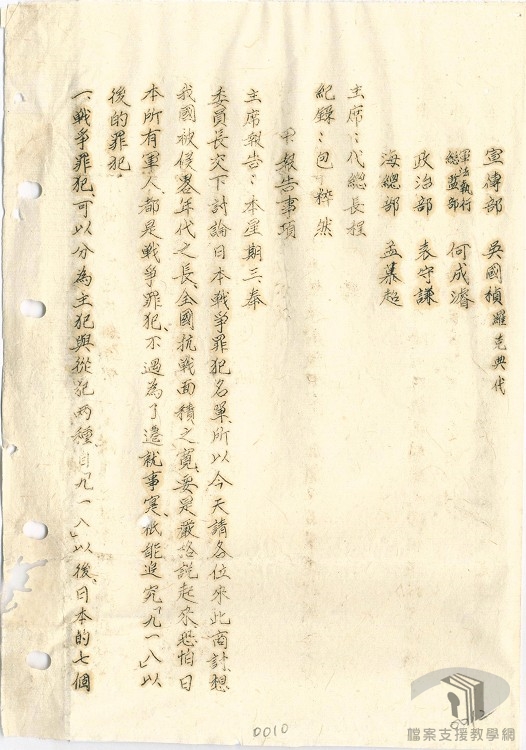 宣傳部 吳國楨 羅克典代
軍法執行總監部 何成濬
政治部 袁守謙
海總部 孟慕超
主席：代總長程
紀錄：包 粹 然
甲報告事項
主席報告：本星期三奉
委員長交下討論日本戰爭罪犯名單所以今天請各位來此商討想
我國被侵畧年代之長、全國抗戰面積之寬、要是嚴格説起來、恐怕日
本所有軍人都是戰爭罪犯、不過為了遷就事實、祇能追究「九一八」以
後的罪犯
一、戰爭罪犯可以分為主犯與從犯兩種自「九一八」以後、日本的七個
0010
檔案支援教學網